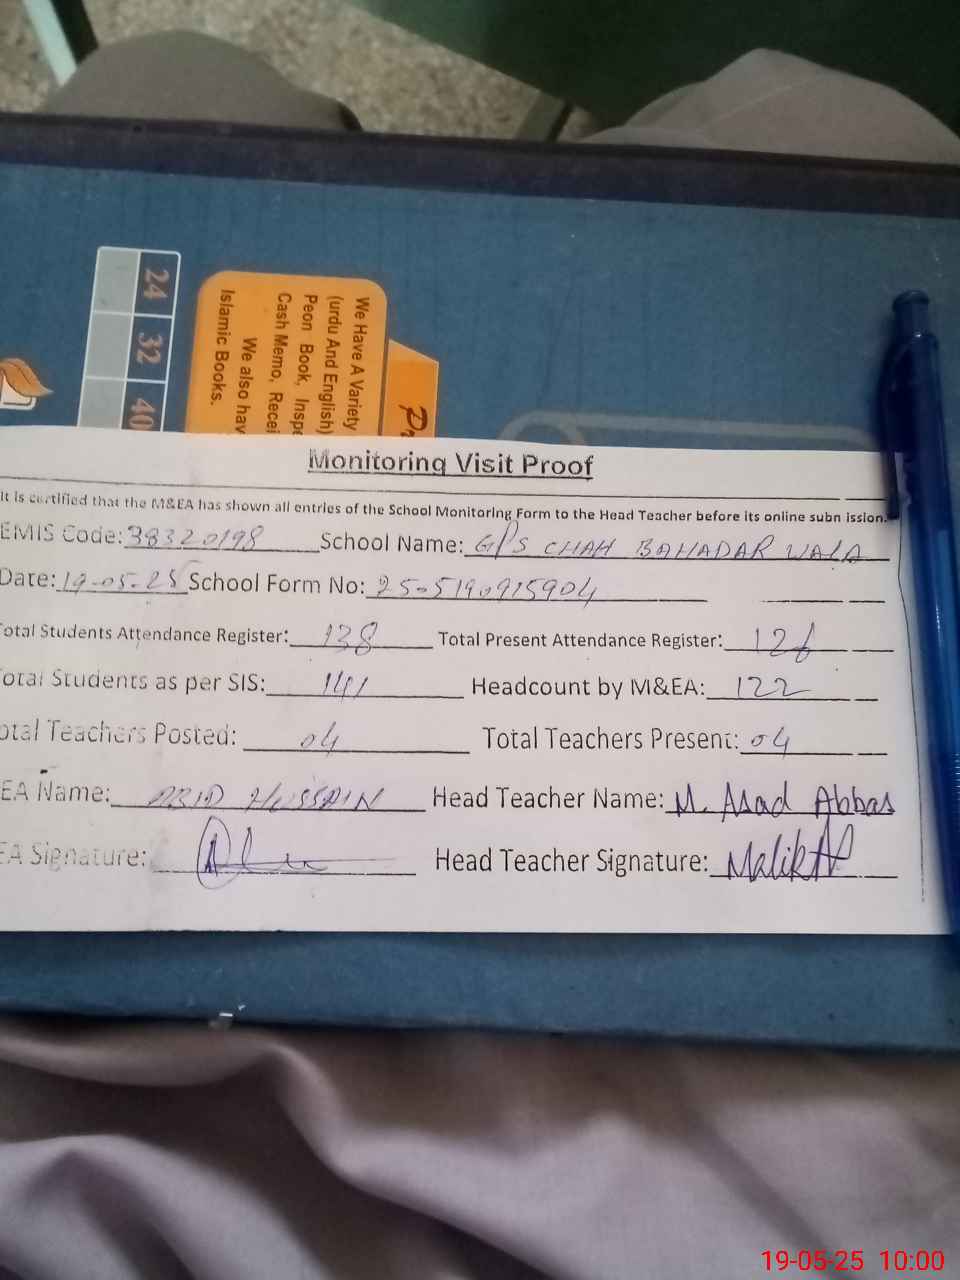 24 32 40
We Have A Variety
(urdu And English)
Peon Book, Inspe
Cash Memo, Recei
We also hav
Islamic Books.
Monitoring Visit Proof
It is certified that the M&EA has shown all entries of the School Monitoring Form to the Head Teacher before its online subn ission.
EMIS Code: 38320198 School Name: GPS CHAH BAHADAR WALA
Date: 19-05-25 School Form No:
Total Students Attendance Register: 138 Total Present Attendance Register: 126
Total Students as per SIS: 141 Headcount by M&EA: 122
otal Teachers Posted: 04 Total Teachers Present: 04
EA Name: ABID HUSSAIN Head Teacher Name: M. Asad Abbas
EA Signature: Head Teacher Signature:
19-05-25 10:00